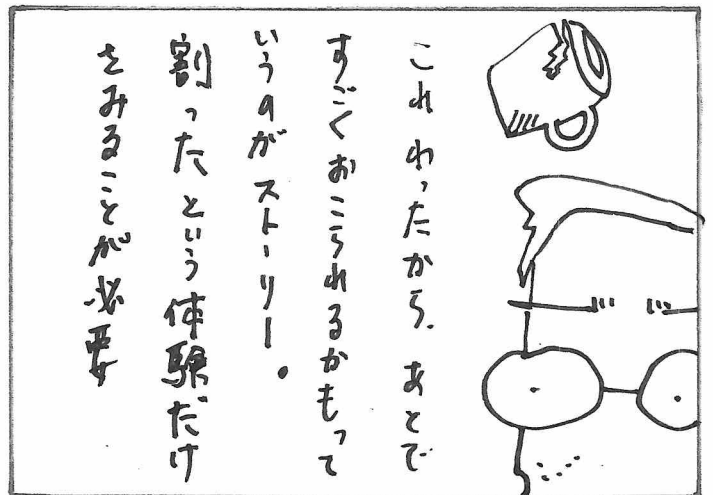 これ わったから、あとで
すごくおこられるかもって
いうのがストーリー。
割ったという体験だけ
をみることが必要